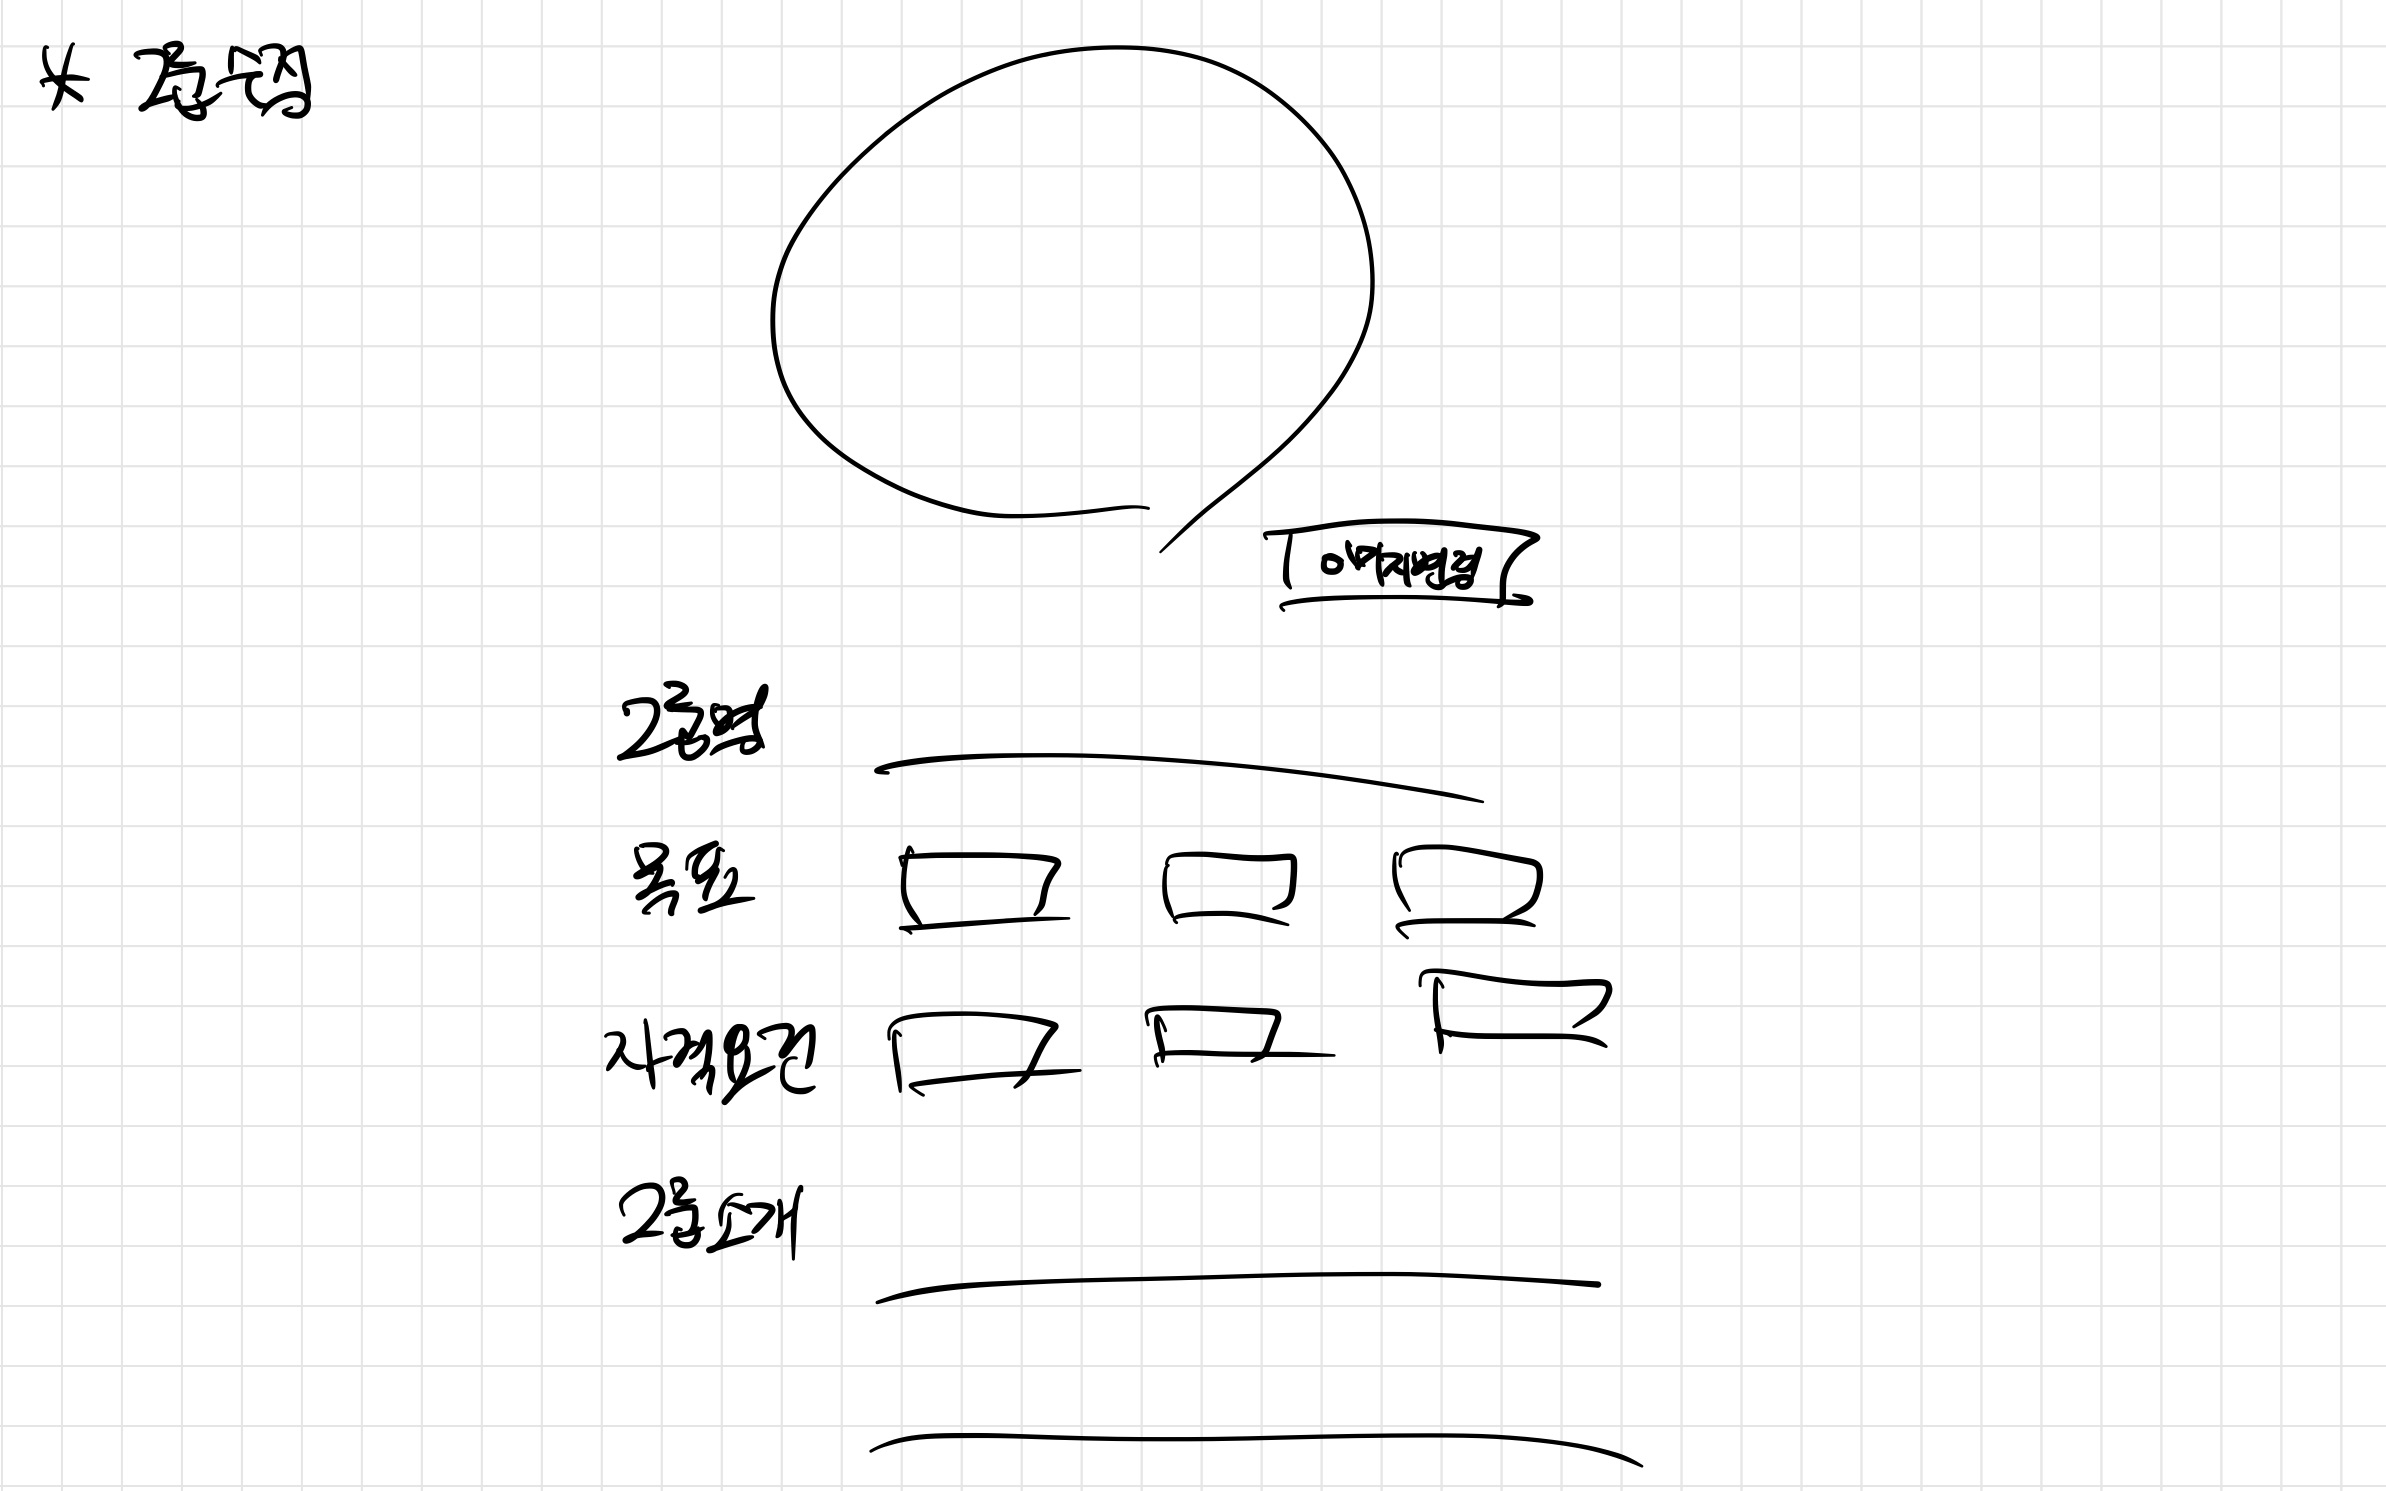 * 그룹수정
이미지변경
그룹명
목표
자격요건
그룹소개